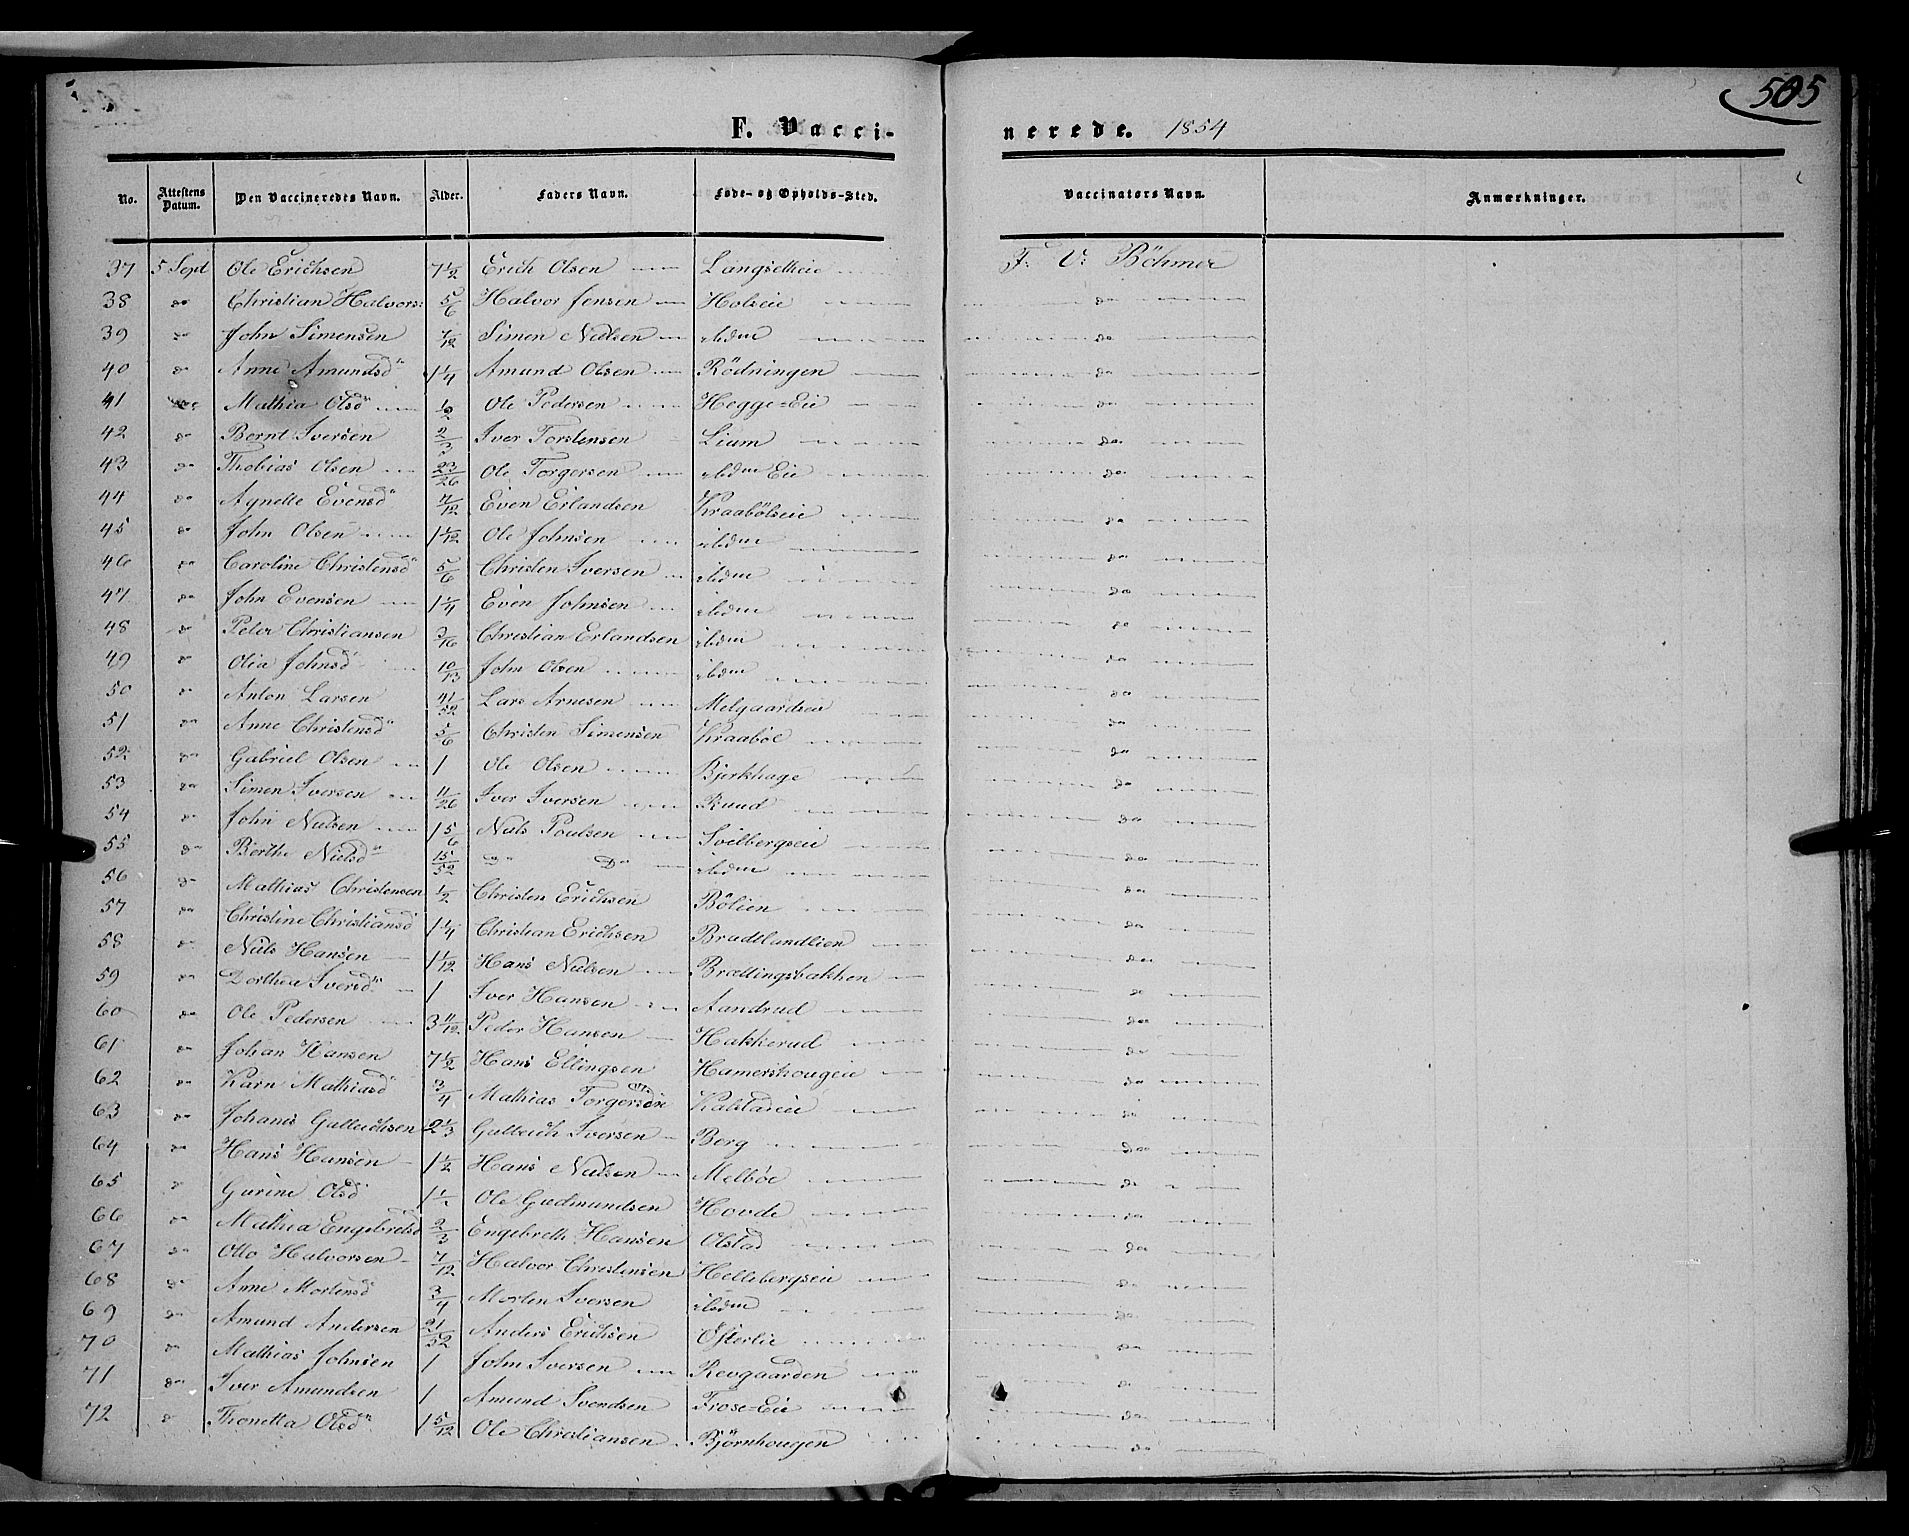 505
F. Vacci-nerede. 1854
No. Attestens Datum. Den Vaccineredes Navn. Alder. Faders Navn. Føde- og Opholds-Sted. Vaccinators Navn. Anmærkninger.
37 5 Sept Ole Erichsen 7 1/2 Erich Olsen Langsetheie F. V: Böhmer
38 do Christian Halvors: 5/6 Halvor Jensen Holseie do
39 do John Simensen 7/12 Simen Nielsen ibdm do
40 do Anne Amundsd 1 1/4 Amund Olsen Rödningen do
41 Mathia Olsd 1/2 Ole Pedersen Hegge=Eie do
42 do Bernt Iversen 2/3 Iver Torstensen Lium do
43 do Thobias Olsen 23/26 Ole Torgersen ibdm Eie do
44 do Agnethe Evensd 7/12 Even Erlandsen Kraabölseie do
45 do John Olsen 1 1/12 Ole Johnsen ibdm do
46 do Caroline Christensd 5/6 Christen Iversen ibdm do
47 do John Evensen 1 1/4 Even Johnsen ibdm do
48 do Peter Christiansen 3/16 Christian Erlandsen ibdm do
49 do Olia Johnsd 10/13 John Olsen ibdm do
50 do Anton Larsen 41/52 Lars Arnesen Melgaardseie do
51 do Anne Christensd 5/6 Christen Simensen Kraaböl do
52 do Gabriel Olsen 1 Ole Olsen Bjerkhage do
53 do Simen Iversen 11/26 Iver Iversen Ruud do
54 do John Nielsen 1 5/6 Niels Poulsen Svelbergseie do
55 do Berthe Nielsd 15/52 do do ibdm do
56 do Mathias Christensen 1/2 Christen Erichsen Bölien do
57 do Christine Christiansd 1 1/4 Christian Erichsen Bradtlandlien do
58 do Niels Hansen 1 1/12 Hans Nielsen Brættingsbakken do
59 do Dorthea Iversd 1 Iver Hansen Aandrud do
60 do Ole Pedersen 3 11/12 Peder Hansen Hakkerud do
61 do Johan Hansen 7 1/2 Hans Ellingsen Hamershougeie do
62 do Karn Mathiasd 3/4 Mathias Torgersen do
63 do Johans Gulbrichsen 2 1/3 Gulbrich Iversen Berg do
64 do Hans Hansen 1 1/2 Hans Nielsen Melböe do
65 do Gurine Olsd Ole Gudmundsen Hovde do
66 do Mathea Engebretsd 2/3 Engebreth Hansen Olstad do
67 do Otto Halvorsen 7/12 Halvor Christensen Hellebergseie do
68 do Anne Mortensd 3/4 Morten Iversen ibdm do
69 do Amund Andersen 21/52 Anders Erichsen Österlie do
70 do Mathias Johnsen 1 John Iversen Revgaarden do
71 do Iver Amundsen 1 Amund Svendsen Frose=Eie do
72 do Thonetta Olsd 1 5/12 Ole Christiansen Björnhougen do